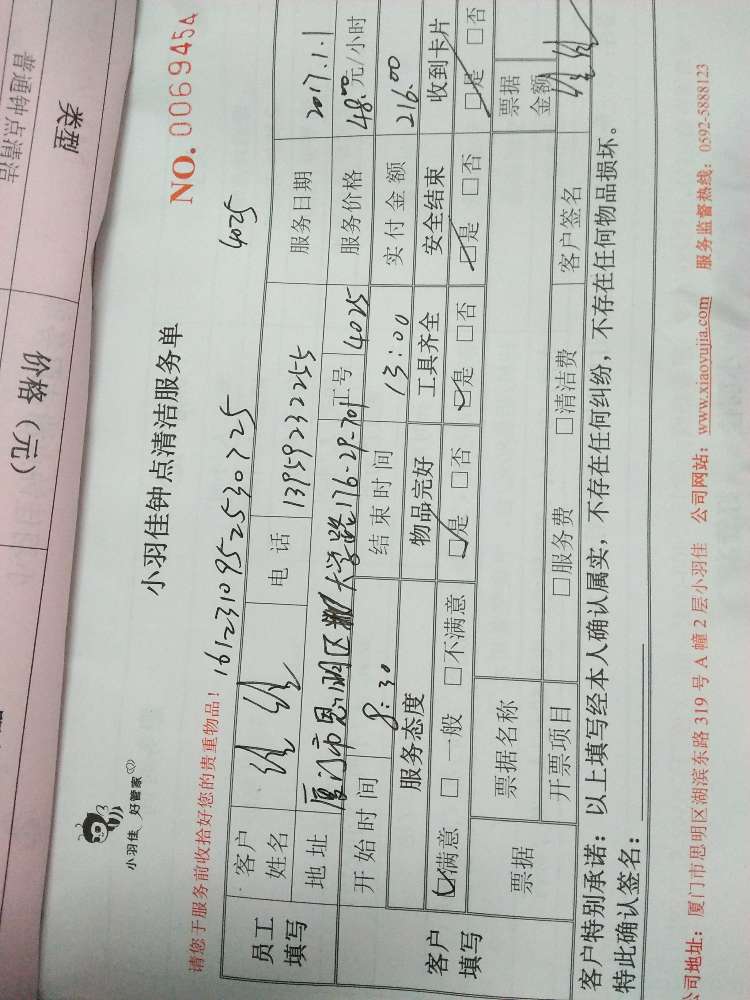 类型
普通钟点清洁
价格（元）
小羽佳 好管家
小羽佳钟点清洁服务单
NO. 0069454
请您于服务前收拾好您的贵重物品！
1612310952530725
4025
员工填写
客户姓名
电话 13959232255
服务日期 2017.1.1
地址 厦门市思明区 大学路176-29-701
工号 4025
服务价格 48.00元/小时
客户填写
开始时间 8:30
结束时间 13:00
实付金额 216.00
服务态度 物品完好 工具齐全 安全结束 收到卡片
☑满意 □一般 □不满意 ☑是 □否 ☑是 □否 ☑是 □否 ☑是 □否
票据 票据名称 票据金额
开票项目 □服务费 □清洁费 客户签名
客户特别承诺：以上填写经本人确认属实，不存在任何纠纷，不存在任何物品损坏。
特此确认签名：
公司地址：厦门市思明区湖滨东路319号A幢2层小羽佳 公司网站：www.xiaoyujia.com 服务监督热线：0592-5888123